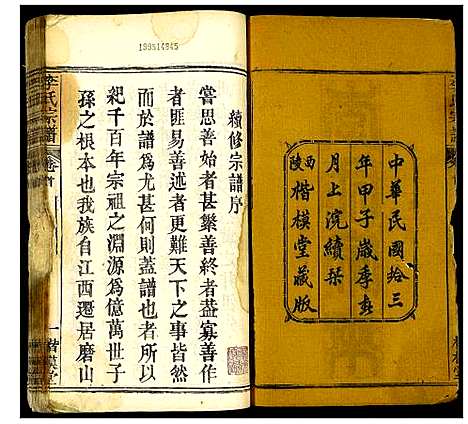 中華民國拾三
年甲子歲季春
月上浣續栞
西陝
楷模堂藏版
續修宗譜序
嘗思善始者甚繁善終者葢寡善作
者匪易善述者更難天下之事皆然
而於譜爲尤甚何則蓋譜也者所以
紀千百年宗祖之淵源爲億萬世子
孫之根本也我族自江西遷居磨山
李氏宗譜
卷首
一
楷模堂